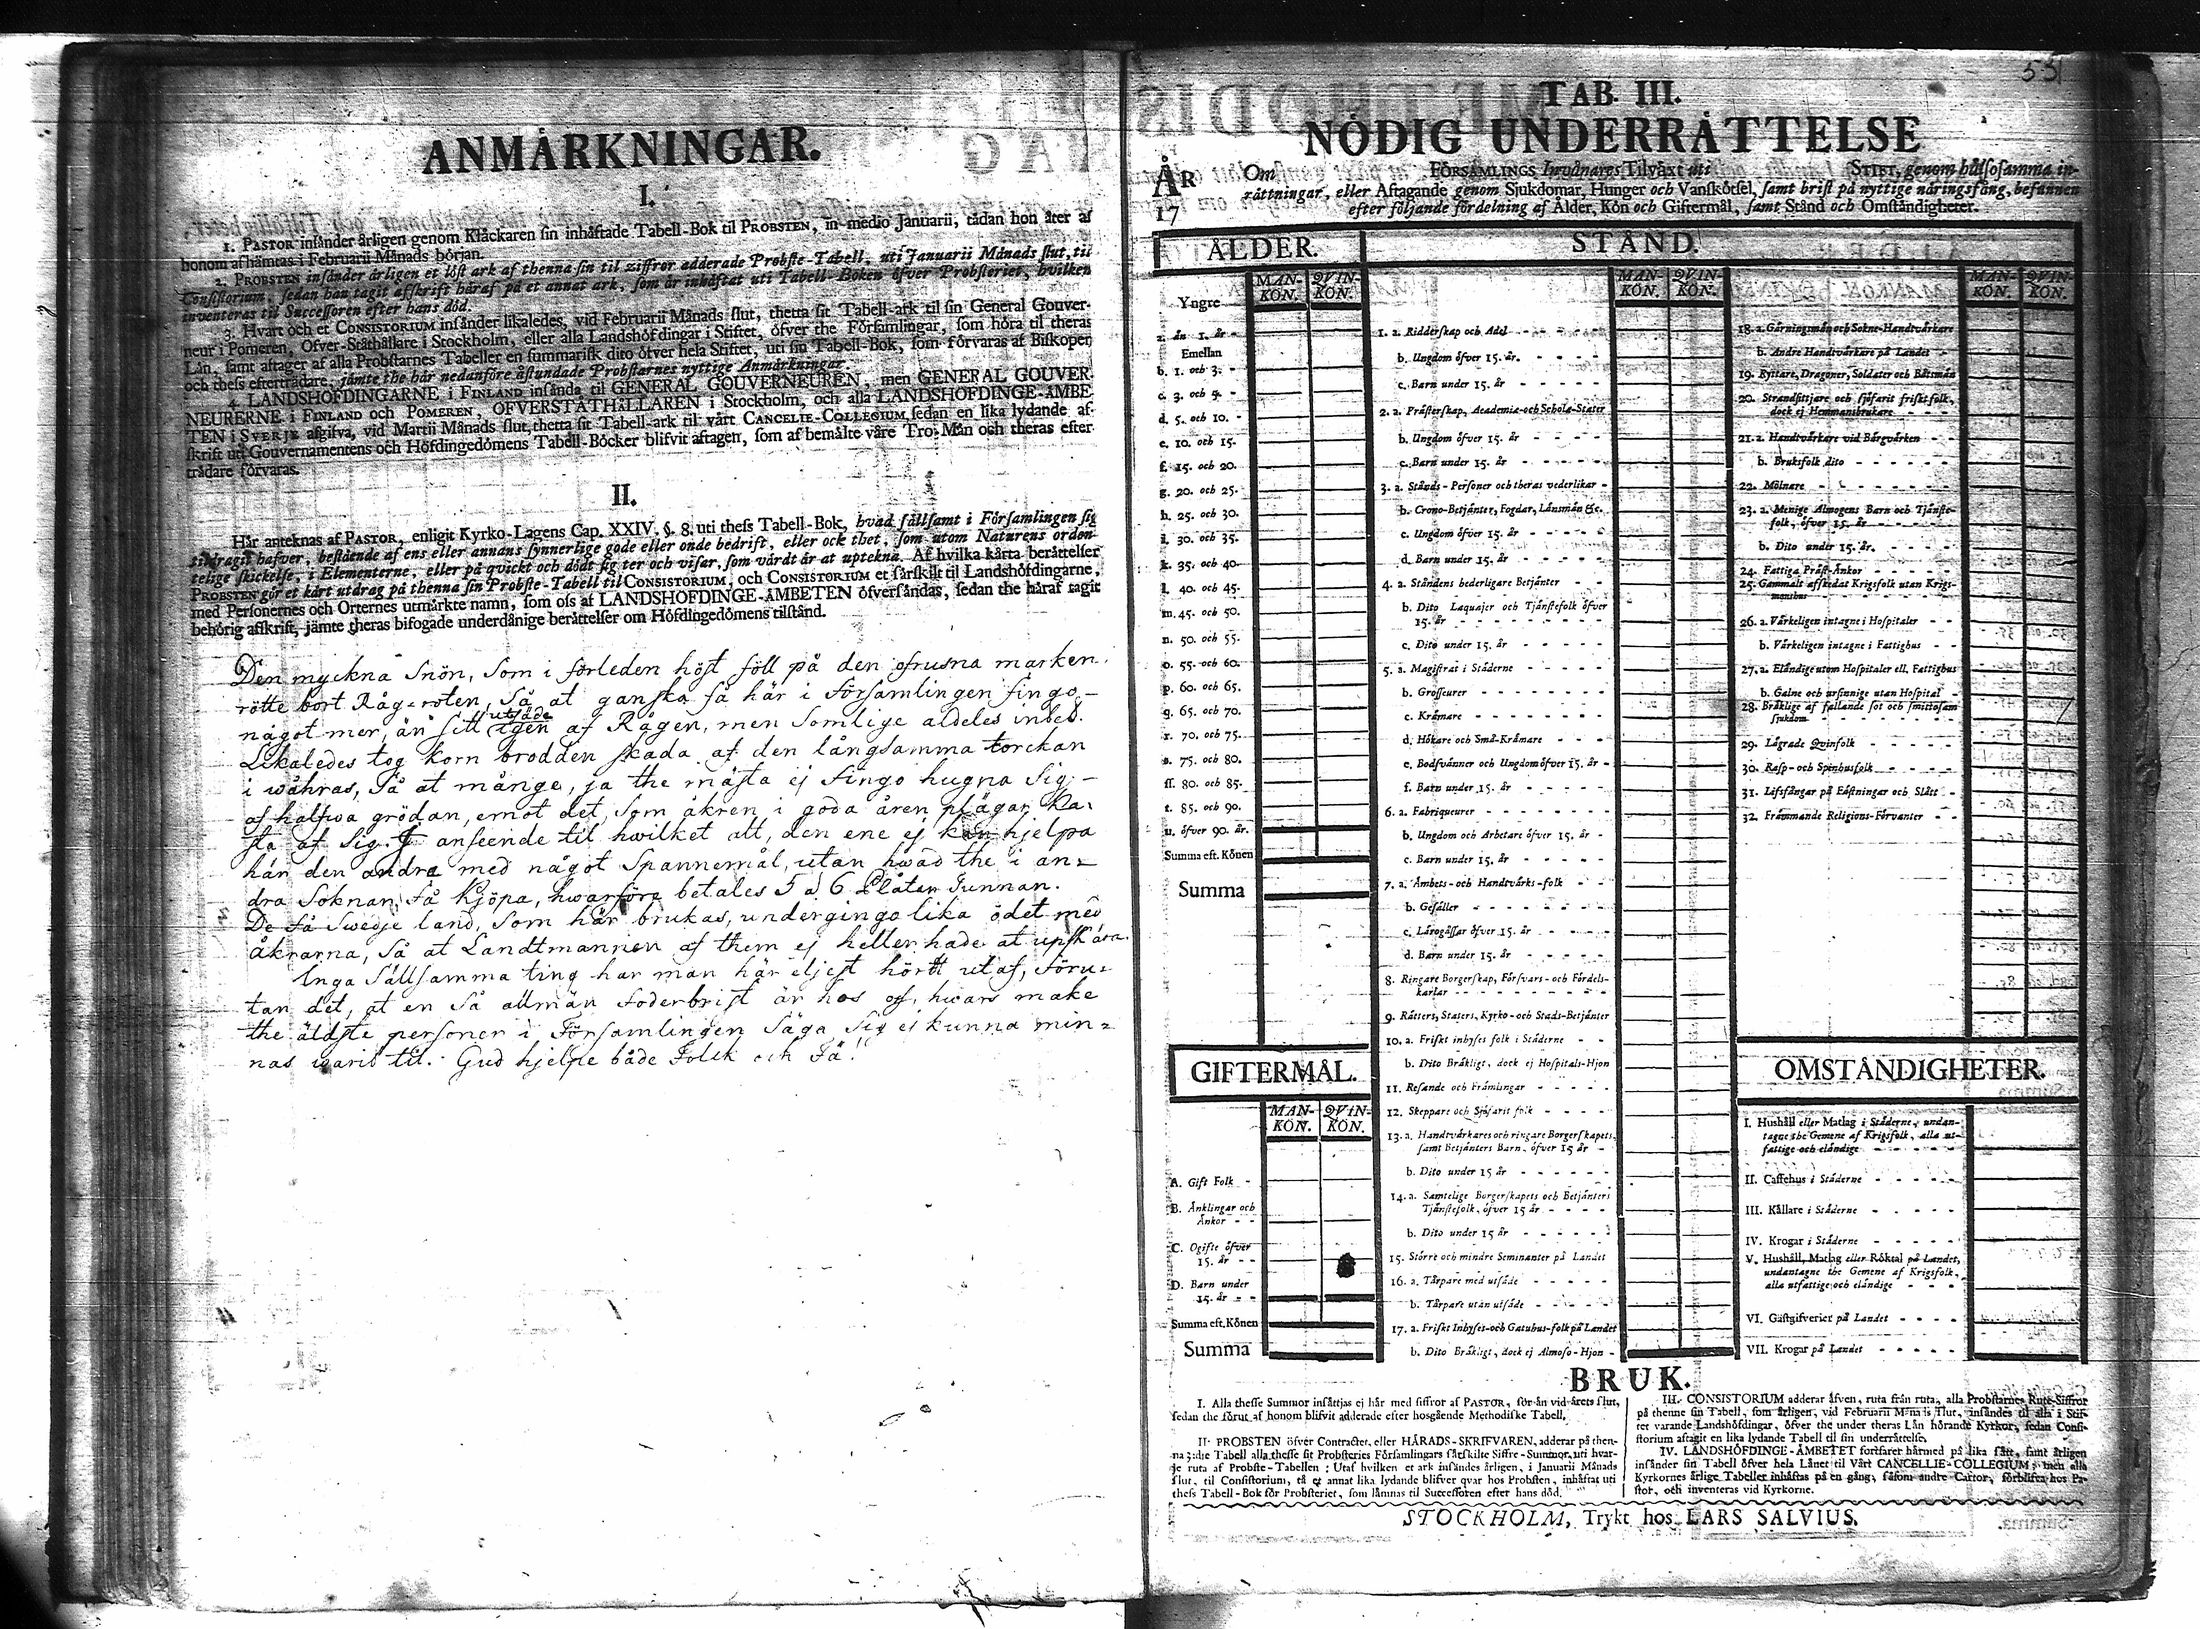 ANMÄRKNINGAR.
I.
1. PASTOR insänder årligen genom Klåckaren sin inhäftade Tabell-Bok til PROBSTEN, in medio Januarii, tädan hon åter af
honom afhämtas i Februarii Månads början.
2. PROBSTEN insänder årligen et löst ark af thenna sin til ziffror adderade Probste-Tabell, uti Januarii Månads slut, til
Consistorium, sedan han tagit afskrift häraf på et annat ark, som är inhäftat uti Tabell-Boken öfver Probsteriet, hvilken
inventeras til Successoren efter hans död.
3. Hvart och et CONSISTORIUM insänder likaledes, vid Februarii Månads slut, thetta sit Tabell-ark til sin General Gouver-
neur i Pomeren, Öfver-Ståthållare i Stockholm, eller alla Landshöfdingar i Stiftet, öfver the Församlingar, som höra til theras
Län, samt aftager af alla Probstarnes Tabeller en summarisk dito öfver hela Stiftet, uti sin Tabell-Bok, som förvaras af Biskopen
och thess efterträdare, jämte the här nedanföre åstundade Probstarnes nyttige Anmärkningar.
4. LANDSHÖFDINGARNE i FINLAND insända til GENERAL GOUVERNEUREN, men GENERAL GOUVER-
NEURERNE i FINLAND och POMEREN, ÖFVERSTÅTHÅLLAREN i Stockholm, och alla LANDSHÖFDINGE-ÄMBE-
TEN i SVERJE afgifva, vid Martii Månads slut, thetta sit Tabell-ark til vårt CANCELIE-COLLEGIUM, sedan en lika lydande af-
skrift uti Gouvernamentens och Höfdingedömens Tabell-Böcker blifvit aftagen, som af bemälte våre Tro-Män och theras efter-
trädare förvaras.
II.
Här anteknas af PASTOR, enligit Kyrko-Lagens Cap. XXIV. §. 8. uti thess Tabell-Bok, hvad sällsamt i Församlingen sig
tildragit hafver, bestående af ens eller annans synnerlige gode eller onde bedrift, eller ock thet, som utom Naturens orden-
telige skickelse, i Elementerne, eller på qvickt och dödt sig ter och visar, som värdt är at uptekna. Af hvilka kårta berättelser
PROBSTEN gör et kårt utdrag på thenna sin Probste-Tabell til CONSISTORIUM, och CONSISTORIUM et särskilt til Landshöfdingarne,
med Personernes och Orternes utmärkte namn, som oss af LANDSHÖFDINGE-ÄMBETEN öfversändas, sedan the häraf tagit
behörig afskrift, jämte theras bifogade underdånige berättelser om Höfdingedömens tilstånd.
Den myckna Snön, Som i förleden höst föll på den ofrusna marken,
rötte bort Råg-roten, Så at ganska få här i församlingen fingo
utsäde
något mer, än sitt igen af Rågen, men Somlige aldeles intet.
Likaledes tog Korn brodden skada af den långsamma torckan
i wåhras, Så at månge, ja the mästa ej fingo hugna Sig
af halfwa grödan, emot det, Som åkren i goda åren plägar ka-
sta af Sig. I anseende til hwilket alt, den ene ej kan hjelpa
här den andra med något Spannemål, utan hwad the i an-
dra Soknar få Kjöpa, hwarföre betales 5 a 6 Plåtar Tunnan.
De få Swedje land, Som här brukas, undergingo lika ödet med
åkrarna, Så at Landtmannen af them ej heller hade at upskära.
Inga Sällsamma ting har man här eljest hördt utaf, föru-
tan det, at en Så allmän foderbrist är hos oss, hwars make
the äldste personer i Församlingen Säga Sig ej kunna min-
nas warit til. Gud hjelpe både Folck och Fä!
551
TAB. III.
NÖDIG UNDERRÄTTELSE
ÅR
17
Om FÖRSAMLINGS Invånares Tilväxt uti STIFT, genom hälsosamma in-
rättningar, eller Aftagande genom Sjukdomar, Hunger och Vanskötsel, samt brist på nyttige näringsfång, befunnen
efter följande fördelning af Ålder, Kön och Giftermål, samt Stånd och Omständigheter.
ÅLDER.
MAN-KÖN. QVIN-KÖN.
Yngre
a. än 1. år -
Emellan
b. 1. och 3. -
c. 3. och 5. -
d. 5. och 10. -
e. 10. och 15.
f. 15. och 20.
g. 20. och 25.
h. 25. och 30.
i. 30. och 35.
k. 35. och 40.
l. 40. och 45.
m. 45. och 50.
n. 50. och 55.
o. 55. och 60.
p. 60. och 65.
q. 65. och 70.
r. 70. och 75.
s. 75. och 80.
ss. 80. och 85.
t. 85. och 90.
u. öfver 90. år.
Summa eft. Könen
Summa
GIFTERMÅL.
MAN-KÖN. QVIN-KÖN.
A. Gift Folk -
B. Änklingar och
Änkor - -
C. Ogifte öfver
15. år - -
D. Barn under
15. år - -
Summa eft. Könen
Summa
STÅND.
MAN-KÖN. QVIN-KÖN.
1. a. Ridderskap och Adel
b. Ungdom öfver 15. år.
c. Barn under 15. år
2. a. Prästerskap, Academia-och Schola-Stater
b. Ungdom öfver 15. år
c. Barn under 15. år
3. a. Stånds-Personer och theras vederlikar
b. Crono-Betjänter, Fogdar, Länsmän &c.
c. Ungdom öfver 15. år
d. Barn under 15. år
4. a. Ståndens hederligare Betjänter
b. Dito Laquajer och Tjänstefolk öfver
15. år
c. Dito under 15. år
5. a. Magistrat i Städerne
b. Grosseurer
c. Krämare
d. Hökare och Små-Krämare
e. Bodsvänner och Ungdom öfver 15. år
f. Barn under 15. år
6. a. Fabriqueurer
b. Ungdom och Arbetare öfver 15. år
c. Barn under 15. år
7. a. Ämbets- och Handtvärks-folk
b. Gesäller
c. Lärogåssar öfver 15. år
d. Barn under 15. år
8. Ringare Borgerskap, Försvars- och Fördels-
karlar
9. Rätters, Staters, Kyrko- och Stads-Betjänter
10. a. Friskt inhyses folk i Städerne
b. Dito Bräkligt, dock ej Hospitals-Hjon
11. Resande och Främlingar
12. Skeppare och Sjöfarit folk
13. a. Handtvärkares och ringare Borgerskapets,
samt Betjänters Barn, öfver 15 år
b. Dito under 15 år
14. a. Samtelige Borgerskapets och Betjänters
Tjänstefolk, öfver 15 år
b. Dito under 15 år
15. Större och mindre Seminanter på Landet
16. a. Tårpare med utsäde
b. Tårpare utan utsäde
17. a. Friskt Inhyses-och Gatuhus-folk på Landet
b. Dito Bräkligt, dock ej Almoso-Hjon
MAN-KÖN. QVIN-KÖN.
18. a. Gärningsmän och Sokne-Handtvärkare
b. Andre Handtvärkare på Landet
19. Ryttare, Dragoner, Soldater och Båtsmän
20. Strandsittjare och sjöfarit friskt folk,
dock ej Hemmansbrukare
21. a. Handtvärkare vid Bärgvärken
b. Bruksfolk dito
22. Mölnare
23. a. Menige Almogens Barn och Tjänste-
folk, öfver 15. år
b. Dito under 15. år.
24. Fattiga Präst-Änkor
25. Gammalt afskedat Krigsfolk utan Krigs-
mansbus
26. a. Värkeligen intagne i Hospitaler
b. Värkeligen intagne i Fattighus
27. a. Eländige utom Hospitaler ell. Fattighus
b. Galne och ursinnige utan Hospital
28. Bräklige af fallande sot och smittosam
sjukdom
29. Lägrade Qvinfolk
30. Rasp- och Spinhusfolk
31. Lifsfångar på Fästningar och Slått
32. Främmande Religions-Förvanter
OMSTÄNDIGHETER.
I. Hushåll eller Matlag i Städerne, undan-
tagne the Gemene af Krigsfolk, alla ut-
fattige och eländige
II. Caffehus i Städerne
III. Källare i Städerne
IV. Krogar i Städerne
V. Hushåll, Matlag eller Röktal på Landet,
undantagne the Gemene af Krigsfolk,
alla utfattige och eländige
VI. Gästgifverier på Landet
VII. Krogar på Landet
BRUK.
I. Alla thesse Summor insättjas ej här med siffror af PASTOR, för än vid årets slut,
sedan the förut af honom blifvit adderade efter hosgående Methodiske Tabell.
II. PROBSTEN öfver Contractet, eller HÄRADS-SKRIFVAREN, adderar på then-
na 3:die Tabell alla thesse sit Probsteries Församlingars särskilte Siffre-Summor, uti hvar-
je ruta af Probste-Tabellen; Utaf hvilken et ark insändes årligen, i Januarii Månads
slut, til Consistorium, tå et annat lika lydande blifver qvar hos Probsten, inhäftat uti
thess Tabell-Bok för Probsteriet, som lämnas til Successoren efter hans död.
III. CONSISTORIUM adderar äfven, ruta från ruta, alla Probstarnes Rute-Siffror
på thenne sin Tabell, som årligen, vid Februarii Månads slut, insändes til alla i Stif-
tet varande Landshöfdingar, öfver the under theras Län hörande Kyrkor, sedan Consi-
storium aftagit en lika lydande Tabell til sin underrättelse.
IV. LANDSHÖFDINGE-ÄMBETET fortfarer härmed på lika sätt, samt årligen
insänder sin Tabell öfver hela Länet til Vårt CANCELLIE-COLLEGIUM; men alla
Kyrkornes årlige Tabeller inhäftas på en gång, såsom andre Cartor, förblifva hos Pa-
stor, och inventeras vid Kyrkorne.
STOCKHOLM, Trykt hos LARS SALVIUS.